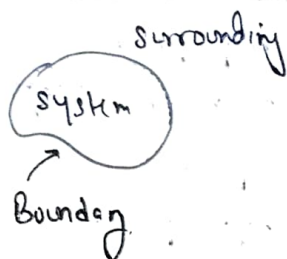 Surrounding
System
Boundary